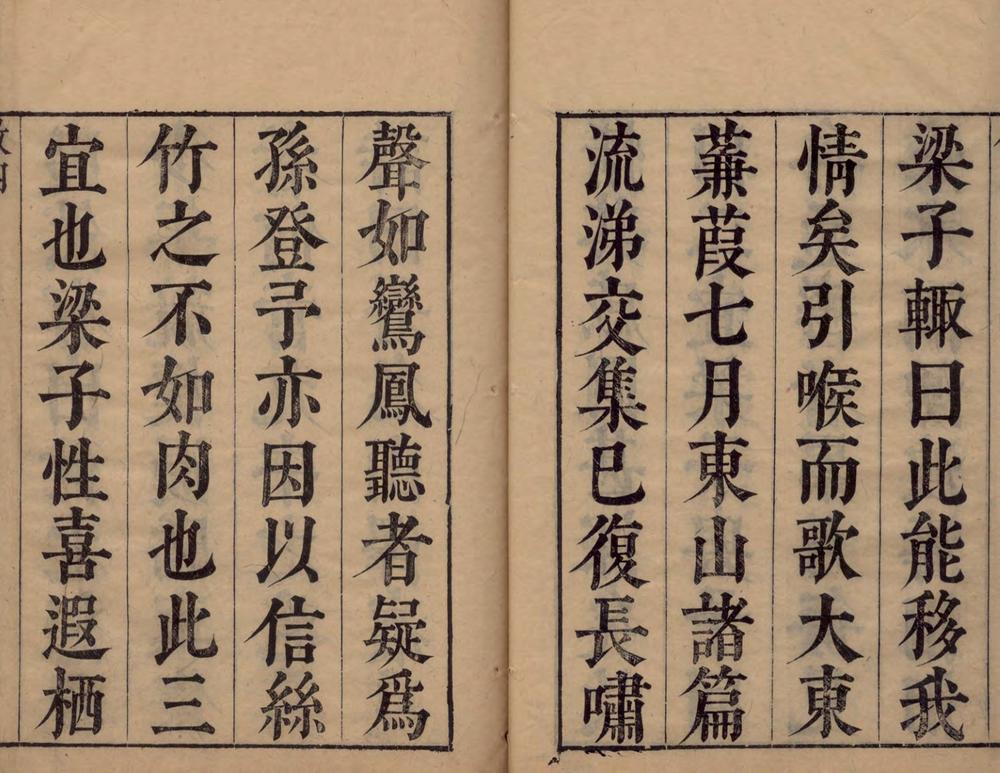 梁子輙曰此能移我
情矣引喉而歌大東
蒹葭七月東山諸篇
流涕交集已復長嘯
聲如鸞鳳聽者疑爲
孫登予亦因以信絲
竹之不如肉也此三
宜也梁子性喜遐栖